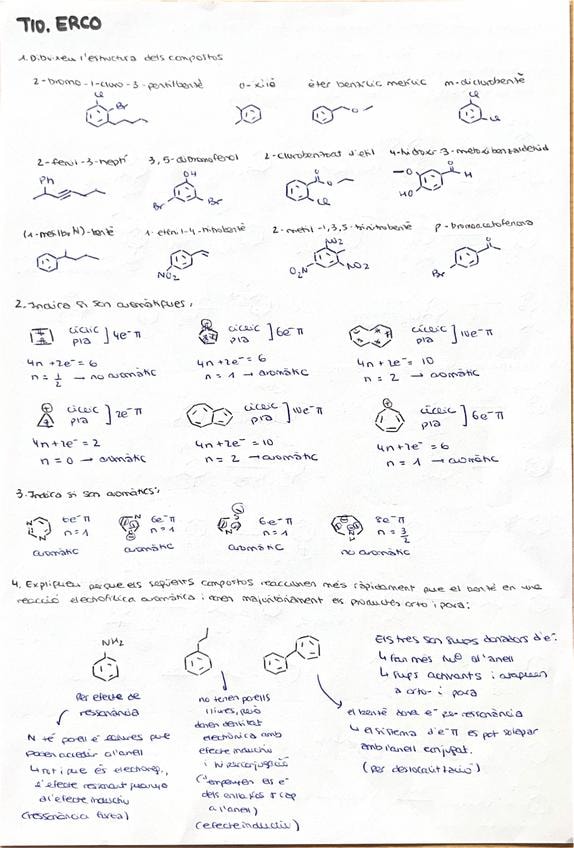 T10. ERCO
1. Dibuixeu l'estructura dels compostos
2-bromo-1-cloro-3-pentilbenzè o-xilè èter benzílic metílic m-diclorbenzè
Cl Br Cl Cl
2-fenil-3-heptí 3,5-dibromofenol 2-clorobenzoat d'etil 4-hidroxi-3-metoxibenzaldehid
Ph OH Br Br O O Cl O H HO
(1-metilbutil)-benzè 1-etenil-4-nitrobenzè 2-metil-1,3,5-trinitrobenzè p-bromoacetofenona
NO2 NO2 O2N NO2 Br O
2. Indica si són aromàtiques,
cíclic pla ] 4e⁻ π cíclic pla ] 6e⁻ π cíclic pla ] 10e⁻ π
4n+2e⁻ = 6 4n+2e⁻ = 6 4n+2e⁻ = 10
n = 1/2 → no aromàtic n = 1 → aromàtic n = 2 → aromàtic
cíclic pla ] 2e⁻ π cíclic pla ] 10e⁻ π cíclic pla ] 6e⁻ π
4n+2e⁻ = 2 4n+2e⁻ = 10 4n+2e⁻ = 6
n = 0 → aromàtic n = 2 → aromàtic n = 1 → aromàtic
3. Indica si són aromàtics,
6e⁻ π 6e⁻ π 6e⁻ π 8e⁻ π
n = 1 n = 1 n = 1 n = 3/2
aromàtic aromàtic aromàtic no aromàtic
4. Expliqueu perquè els següents compostos reaccionen més ràpidament que el benzè en una
reacció electrofílica aromàtica i donen majoritàriament els productes orto i para:
NH2
Per efecte de
ressonància
N té parell e⁻ lliures que
poden accedir a l'anell
L'efecte
d'efecte inductiu
(ressonància forta)
no tenen parells
lliures, però
donen densitat
electrònica amb
efecte inductiu
i hiperconjugació
("empenyen els e⁻
dels enllaços σ cap
a l'anell)
(efecte inductiu)
Els tres són grups donadors d'e⁻
↳ fan més Nu⁻ a l'anell
↳ grups activants i
a orto- i para
el benzè dona e⁻ per ressonància
↳ el sistema d'e⁻ π es pot solapar
amb l'anell conjugat.
(per deslocalització)